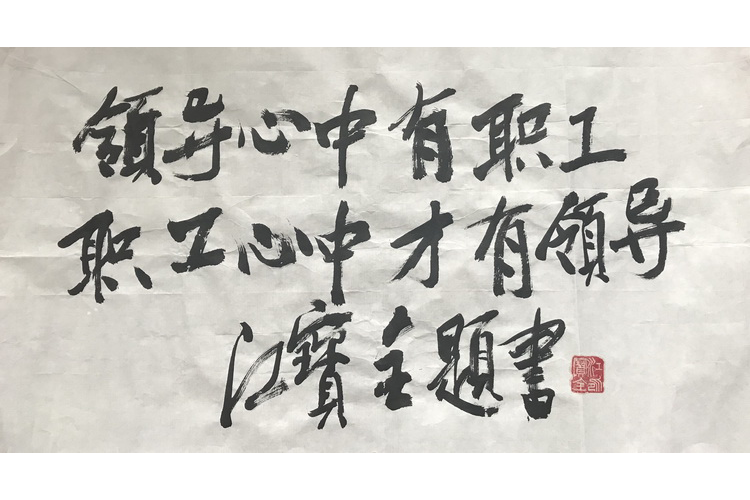 領导心中有职工
职工心中才有領导
江寳全題書